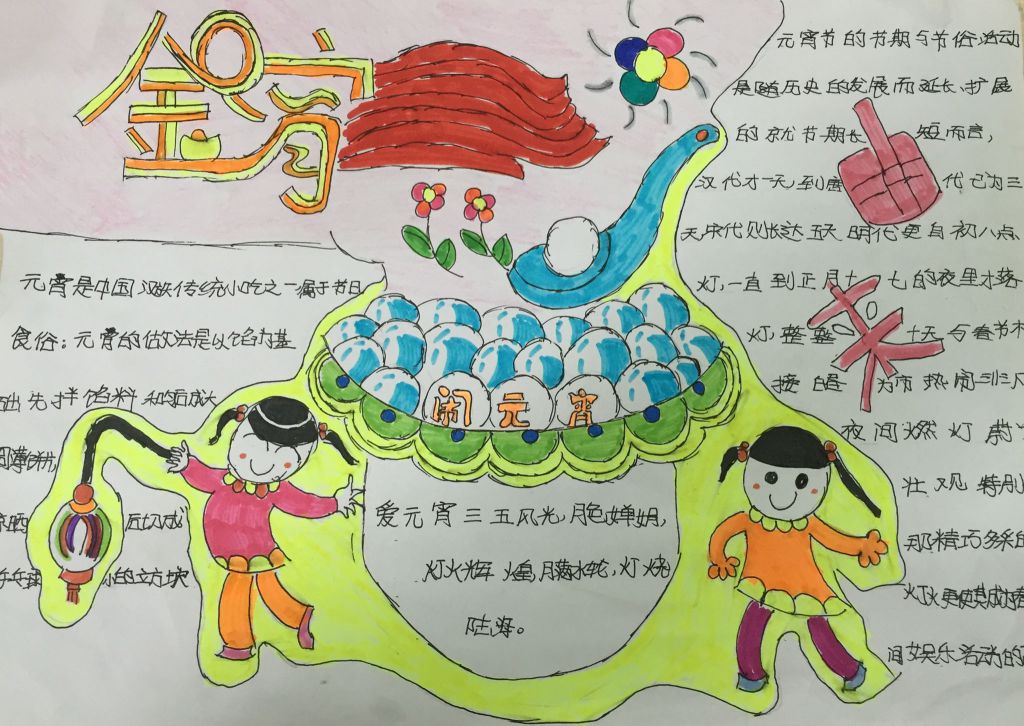 金宵
元宵是中国汉族传统小吃之一属于节日
食俗：元宵的做法是以馅为基
础先拌馅料和匀摊成
后切成
的立方块
闹元宵
爱元宵三五风光，月色婵娟，
灯火辉煌，月满冰轮，灯烧
陆海。
元宵节的节期与节俗活动
是随历史的发展而延长、扩展
的就节期长短而言，
汉代才一天，到唐代已为三
天宋代则长达五天明代更自初八点
灯，一直到正月十七的夜里才落
灯，整整十天与春节相
接白昼为市热闹
夜间燃灯蔚
壮观特别
那精巧多彩的
灯火更使其成为春
间娱乐活动的